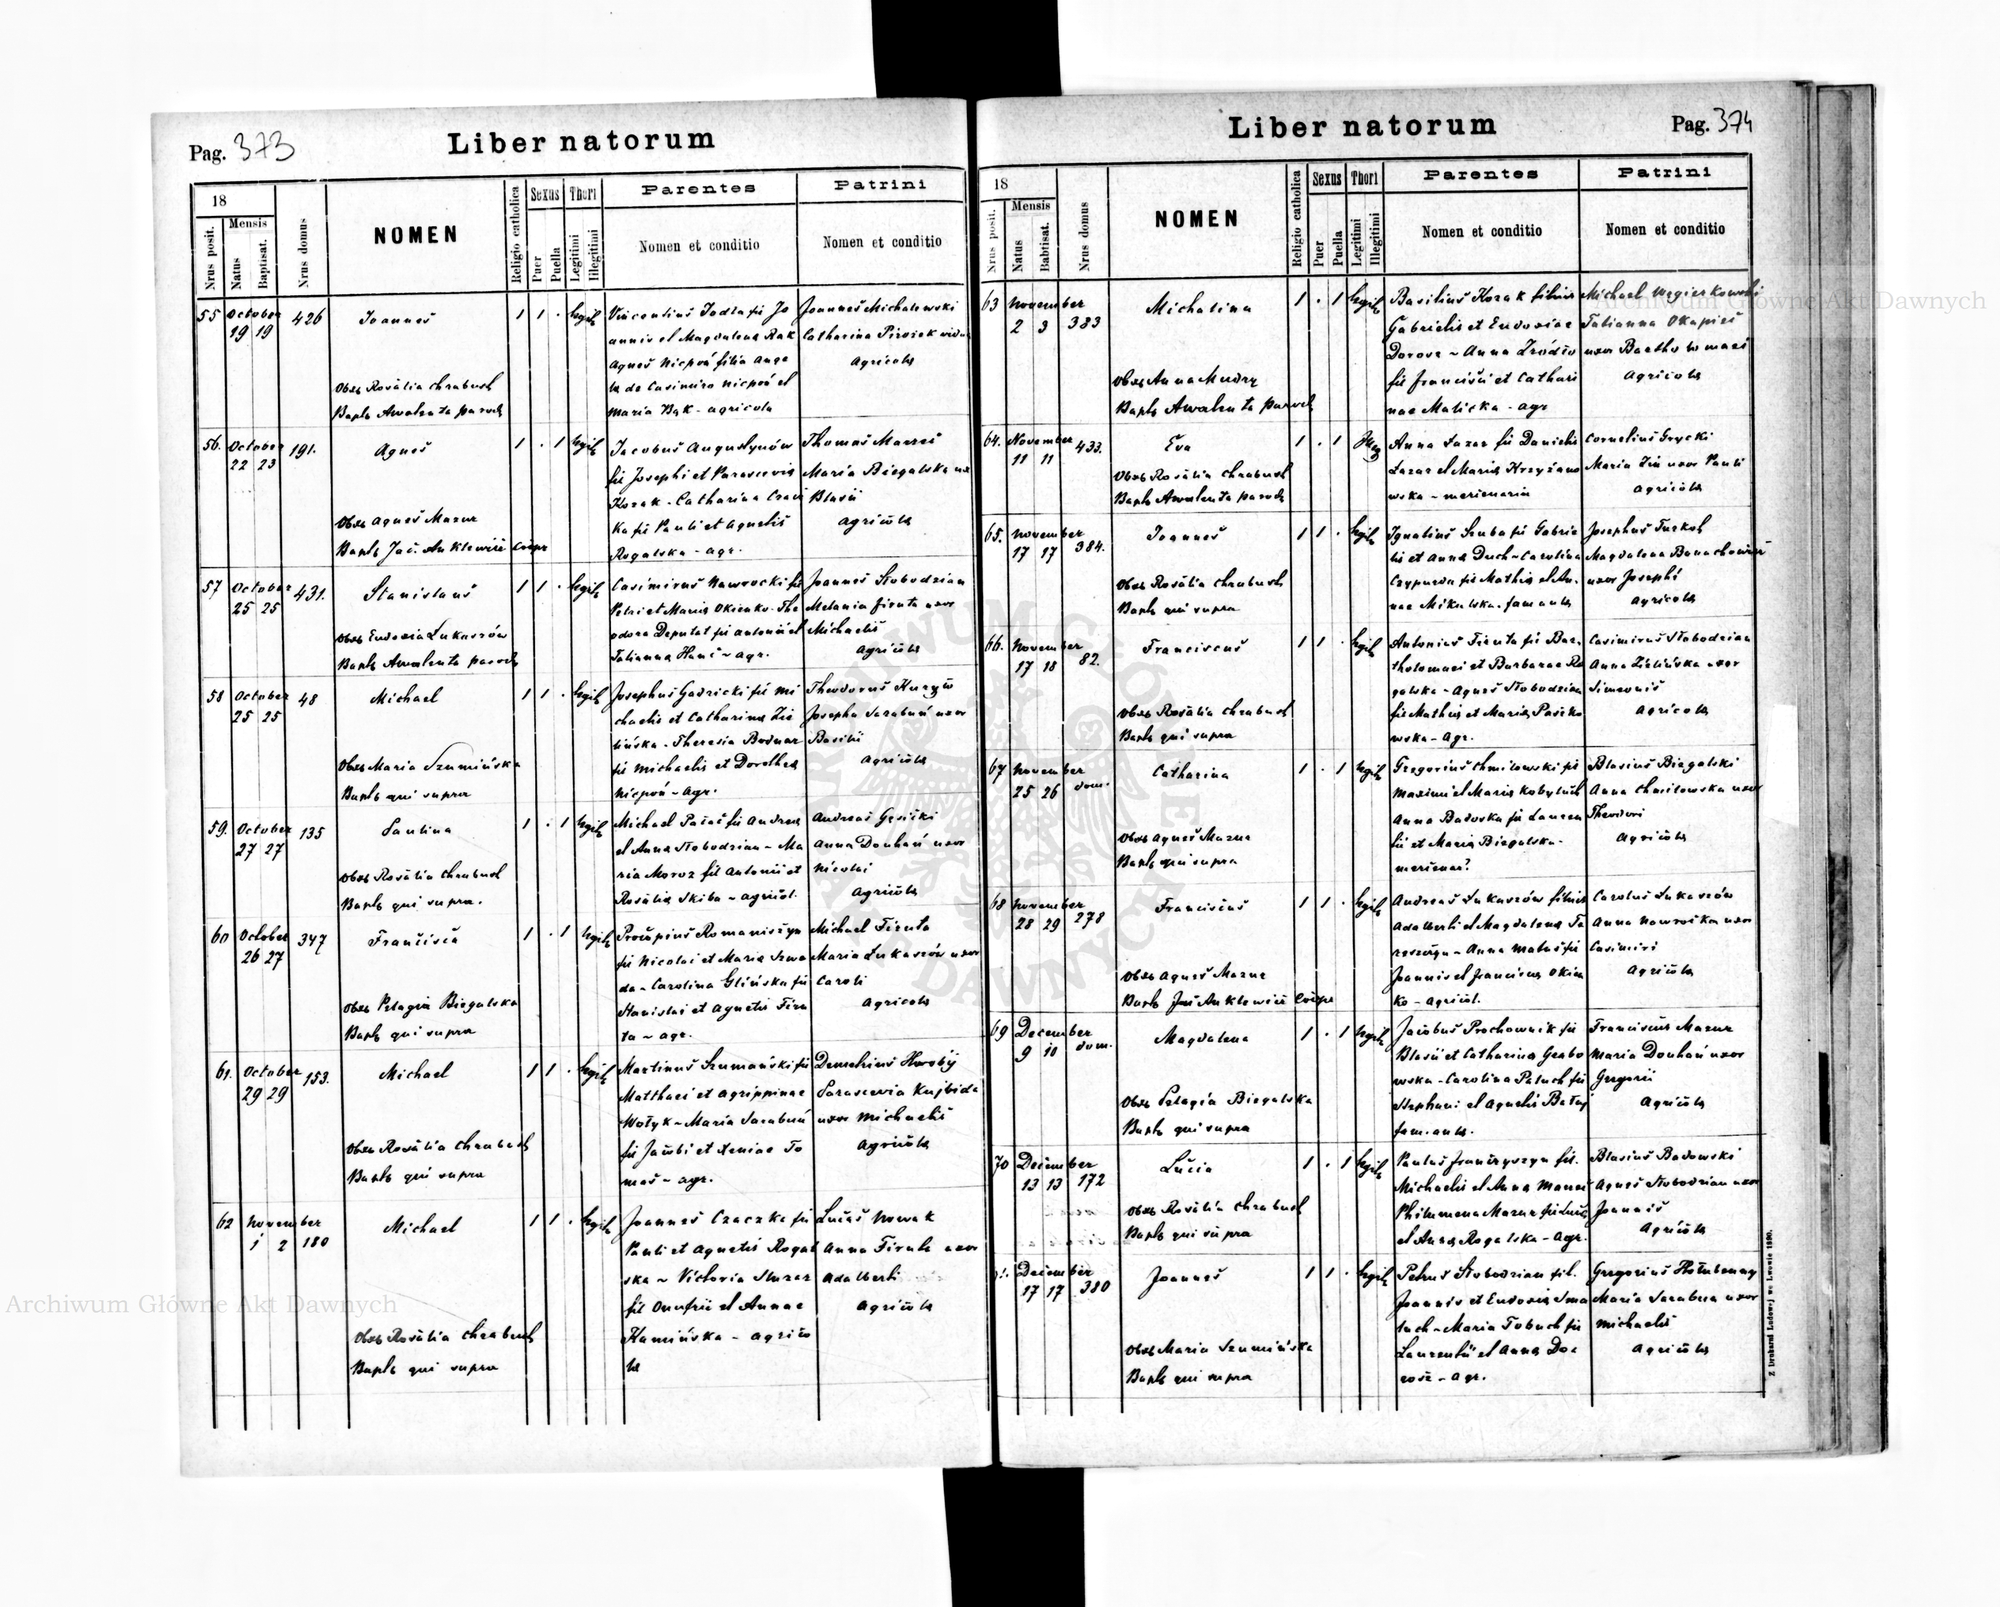 Pag. 373
Liber natorum
18
Mensis
Nrus posit.
Natus
Baptisat.
Nrus domus
NOMEN
Religio catholica
Sexus
Puer
Puella
Thori
Legitimi
Illegitimi
Parentes
Nomen et conditio
Patrini
Nomen et conditio
55 October 426 Joannes 1 1 . legit. Vincentius Jodła fil Jo Joannes Michalewski
19 19 annis et Magdalena Rak Catharina
Agnes Nicpoń filia Ange Agricola
Obst Rosalia Chrabust la de Casimiro Nicpoń et
Bapt Awalenta paroch Maria Bąk - agricola
56. October 191. Agnes 1 . 1 legit Jacobus Augustynów Thomas
22 23 fil Josephi et Parascevia Maria Biegalska
Kozak - Catharina Blasii
Obst Agnes Mazur ka fil Pauli et Agnetis Agricola
Bapt Jac. Anklewicz Coope Rogalska - agr.
57 October 431. Stanislaus 1 1 . legit Casimirus Nawrocki fil Joannes Słobodzian
25 25 Petri et Maria Okienko - The Melania Firuta uxor
Obst Eudoxia Łukaszów odora Deputat fil Antonii et Michaelis
Bapt Awalenta paroch Tatianna - agr. Agricola
58 October 48 Michael 1 1 . legit Josephus Gadzicki fil Mi Theodorus
25 25 chaelis et Catharina Zie Josepha Saraburi uxor
lińska - Theresia Bodnar Basilii
Obst Maria Szumińska fil Michaelis et Dorothea Agricola
Bapt qui supra Nicpoń - agr.
59. October 135 Paulina 1 . 1 legit Michael fil Andrea Andreas
27 27 et Anna Słobodzian - Ma Anna Douhań uxor
Obst Rosalia Chrabust ria Moroz fil Antonii et Nicolai
Bapt qui supra. Rosalia Skiba - agricol. Agricola
60 October 347 Francisca 1 . 1 legit Procopius Romaniszyn Michael Firuta
26 27 fil Nicolai et Maria Maria Łukaszów uxor
da - Carolina Glińska fil Caroli
Obst Pelagia Biegalska Stanislai et Agnetis Firu Agricola
Bapt qui supra ta - agr.
61. October 153. Michael 1 1 . legit Martinus Szumański fil Demetrius
29 29 Matthaei et Agrippinae Parascevia Kujbida
Wołyk - Maria Saraburi uxor Michaelis
Obst Rosalia Chrabust fil Jacobi et Xeniae To Agricola
Bapt qui supra mas - agr.
62 November 180 Michael 1 1 . legit Joannes Czaczka fil Lucas Nowak
1 2 Pauli et Agnetis Rogal Anna Firuta uxor
ska - Victoria Adalberti
fil Onufrii et Annae Agricola
Obst Rosalia Chrabust Kamińska - agrico
Bapt qui supra la
Liber natorum
Pag. 374
18
Mensis
Nrus posit.
Natus
Babtisat.
Nrus domus
NOMEN
Religio catholica
Sexus
Puer
Puella
Thori
Legitimi
Illegitimi
Parentes
Nomen et conditio
Patrini
Nomen et conditio
63 November 383 Michalina 1 . 1 legit Basilius Kozak filius Michael Węgierkowski
2 3 Gabrielis et Eudoxiae Tatianna
- Anna uxor Bartholomaei
Obst Anna Mudry fil Francisci et Cathari Agricola
Bapt Awalenta paroch nae Malicka - agr
64. November 433. Eva 1 . 1 Illeg Anna Łazar fil Danielis Cornelius Grycki
11 11 Łazar et Maria Krzyżano Maria uxor Pauli
Obst Rosalia Chrabust wska - mercenaria Agricola
Bapt Awalenta paroch
65. November 384. Joannes 1 1 . legit Ignatius Szuba fil Gabrie Josephus
17 17 lis et Anna Duch - Carolina Magdalena
Obst Rosalia Chrabust fil Mathia et An- uxor Josephi
Bapt qui supra nae Mikulska - famula Agricola
66. November 82. Franciscus 1 1 . legit Antonius Firuta fil Bar- Casimirus Słobodzian
17 18 tholomaei et Barbarae Ro Anna Zielińska uxor
galska - Agnes Słobodzian Simeonis
Obst Rosalia Chrabust fil Mathia et Maria Agricola
Bapt qui supra wska - agr.
67 November dom. Catharina 1 . 1 legit Gregorius Chmilowski fil Blasius Biegalski
25 26 Maximi et Maria Anna Chmilowska uxor
Anna Badowska fil Lauren Theodori
Obst Agnes Mazur tii et Maria Biegalska - Agricola
Bapt qui supra
68 November 278 Franciscus 1 1 . legit Andreas Łukaszów filius Carolus Łukaszów
28 29 Adalberti et Magdalena Ta Anna Nawrocka uxor
raszczyn - Anna fil Casimiri
Obst Agnes Mazur Joannis et Francisca Okien Agricola
Bapt Jac Anklewicz Coope ko - agricol.
69 December dom. Magdalena 1 . 1 legit Jacobus Prochownik fil Franciscus Mazur
9 10 Blasii et Catharina Grabo Maria Douhań uxor
wska - Carolina Paluch fil Gregorii
Obst Pelagia Biegalska Stephani et Agnetis Agricola
Bapt qui supra
70 December 172 Lucia 1 . 1 legit Paulus Franczyszyn fil. Blasius Badowski
13 13 Michaelis et Anna Agnes Słobodzian uxor
Obst Rosalia Chrabust Philumena Mazur fil Joannis
Bapt qui supra et Anna Rogalska - agr. Agricola
December 380 Joannes 1 1 . legit Petrus Słobodzian fil. Gregorius Hołubenny
17 17 Joannis et Eudoxia Maria uxor
- Maria Tobuch fil Michaelis
Obst Maria Szumińska Laurentii et Anna Do Agricola
Bapt qui supra rosz - agr.
Z Drukarni Ludowej we Lwowie 1890.
Archiwum Główne Akt Dawnych
Archiwum Główne Akt Dawnych
ARCHIWUM GŁÓWNE AKT DAWNYCH